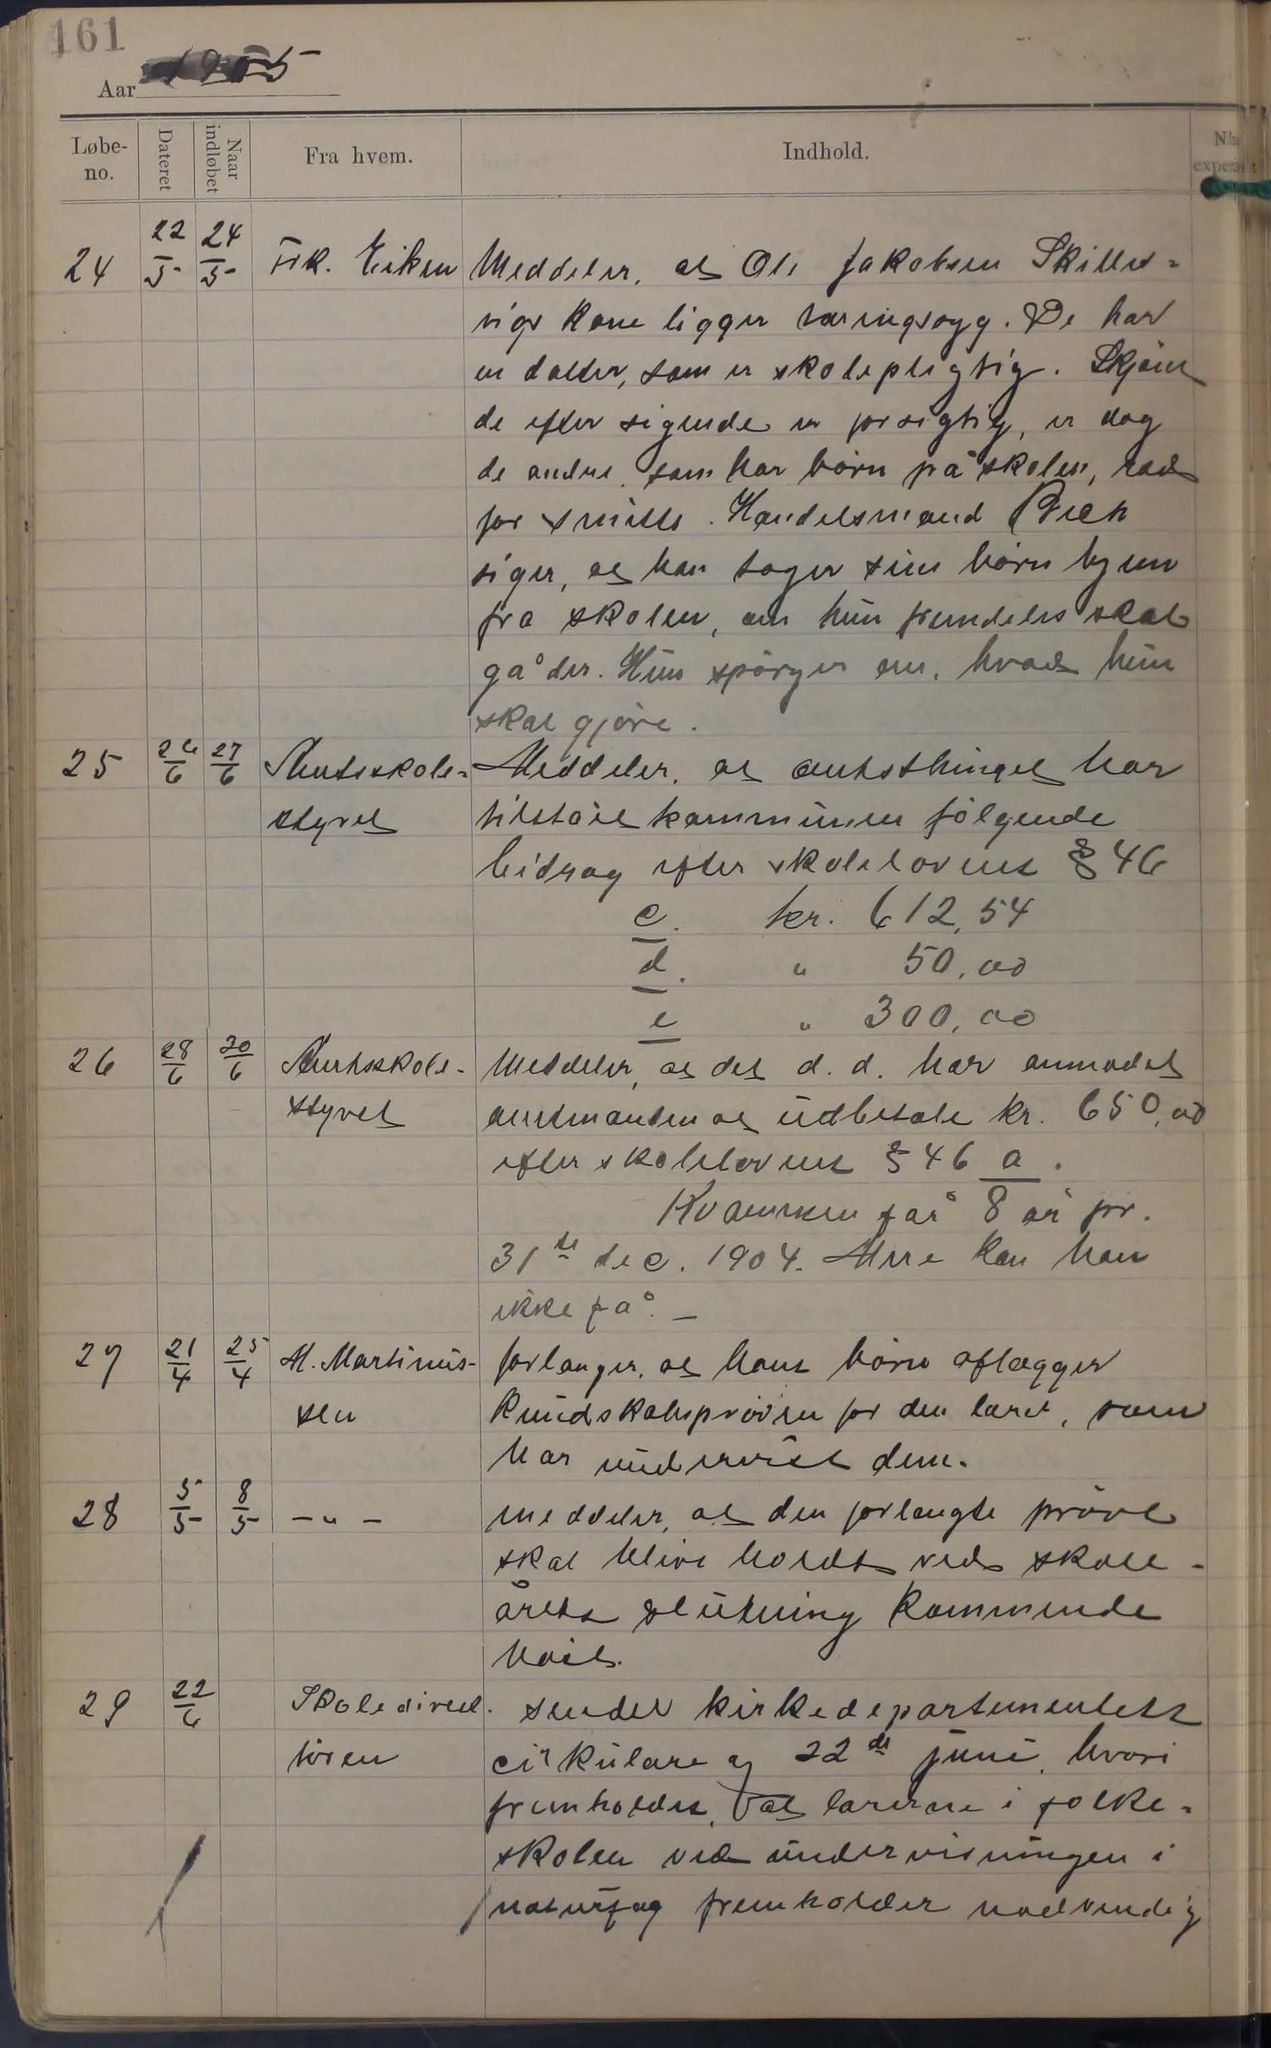 161
Aar 1905
Løbe-no. Dateret Naar indløbet Fra hvem. Indhold.
24 22/5 24/5 Frk. Eiken Meddeler, at Ole Jakobsen Skilles-
vigs kone ligger tæringssyg. De har
en datter, som er skolepligtig. Skjøn
de efter sigende er forsigtig, er dog
de andre, som har børn på skolen, ræd
for smitte. Handelsmand
siger, at han tager sine børn hjem
fra skolen, om hun fremdeles skal
gå der. Hun spørger om, hvad hun
skal gjøre.
25 26/6 27/6 Amtsskole- Meddeler, at amtsthinget har
styret tilståel kommunen følgende
bidrag efter skolelovens § 46
c. kr. 612,54
d. " 50,00
e " 300,00
26 28/6 30/6 Amtsskole- Meddeler, at det d. d. har anmodet
styret amtmanden at udbetale kr. 650,00
efter skolelovens § 46 a.
Kvammen får 8 år pr.
31te dec. 1904. Mere kan han
ikke få. –
27 21/4 25/4 M. Martinus- forlanger, at hans børn aflægger
sen kundskabsprøven for den lærer, som
har undervist dem.
28 5/5 8/5 – " – meddeler, at den forlangte prøve
skal blive holdt ved skole-
årets slutning kommende
høst.
29 22/6 Skoledirek- sender kirkedepartementets
tøren cirkulære af 22de juni, hvori
fremholdes, at lærerne i folke-
skolen ved undervisningen i
naturfag fremholder nødvendig